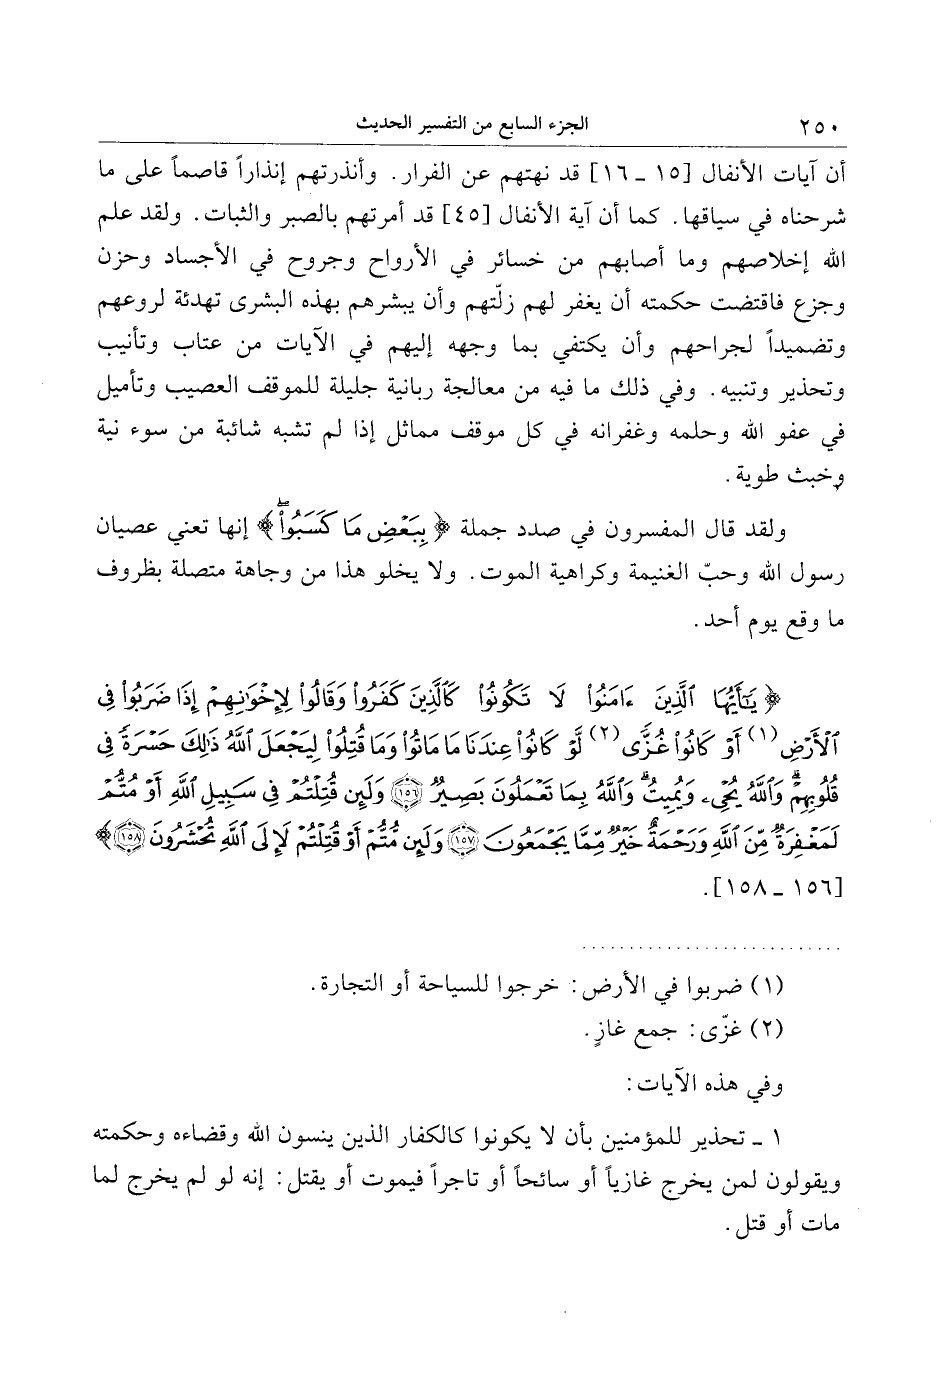 ٢٥٠ الجزء السابع من التفسير الحديث
أن آيات الأنفال [١٥ ـ ١٦] قد نهتهم عن الفرار. وأنذرتهم إنذاراً قاصماً على ما
شرحناه في سياقها. كما أن آية الأنفال [٤٥] قد أمرتهم بالصبر والثبات. ولقد علم
الله إخلاصهم وما أصابهم من خسائر في الأرواح وجروح في الأجساد وحزن
وجزع فاقتضت حكمته أن يغفر لهم زلّتهم وأن يبشرهم بهذه البشرى تهدئة لروعهم
وتضميداً لجراحهم وأن يكتفي بما وجهه إليهم في الآيات من عتاب وتأنيب
وتحذير وتنبيه. وفي ذلك ما فيه من معالجة ربانية جليلة للموقف العصيب وتأميل
في عفو الله وحلمه وغفرانه في كل موقف مماثل إذا لم تشبه شائبة من سوء نية
وخبث طوية.
ولقد قال المفسرون في صدد جملة ﴿بِبَعْضِ مَا كَسَبُواْۖ﴾ إنها تعني عصيان
رسول الله وحبّ الغنيمة وكراهية الموت. ولا يخلو هذا من وجاهة متصلة بظروف
ما وقع يوم أحد.
﴿يَٰٓأَيُّهَا ٱلَّذِينَ ءَامَنُواْ لَا تَكُونُواْ كَٱلَّذِينَ كَفَرُواْ وَقَالُواْ لِإِخْوَٰنِهِمْ إِذَا ضَرَبُواْ فِى
ٱلْأَرْضِ(١) أَوْ كَانُواْ غُزًّى(٢) لَّوْ كَانُواْ عِندَنَا مَا مَاتُواْ وَمَا قُتِلُواْ لِيَجْعَلَ ٱللَّهُ ذَٰلِكَ حَسْرَةً فِى
قُلُوبِهِمْۗ وَٱللَّهُ يُحْىِۦ وَيُمِيتُۗ وَٱللَّهُ بِمَا تَعْمَلُونَ بَصِيرٌ ١٥٦ وَلَئِن قُتِلْتُمْ فِى سَبِيلِ ٱللَّهِ أَوْ مُتُّمْ
لَمَغْفِرَةٌ مِّنَ ٱللَّهِ وَرَحْمَةٌ خَيْرٌ مِّمَّا يَجْمَعُونَ ١٥٧ وَلَئِن مُّتُّمْ أَوْ قُتِلْتُمْ لَإِلَى ٱللَّهِ تُحْشَرُونَ ١٥٨﴾
[١٥٦ ـ ١٥٨].
...........................
(١) ضربوا في الأرض: خرجوا للسياحة أو التجارة.
(٢) غزّى: جمع غازٍ.
وفي هذه الآيات:
١ ـ تحذير للمؤمنين بأن لا يكونوا كالكفار الذين ينسون الله وقضاءه وحكمته
ويقولون لمن يخرج غازياً أو سائحاً أو تاجراً فيموت أو يقتل: إنه لو لم يخرج لما
مات أو قتل.